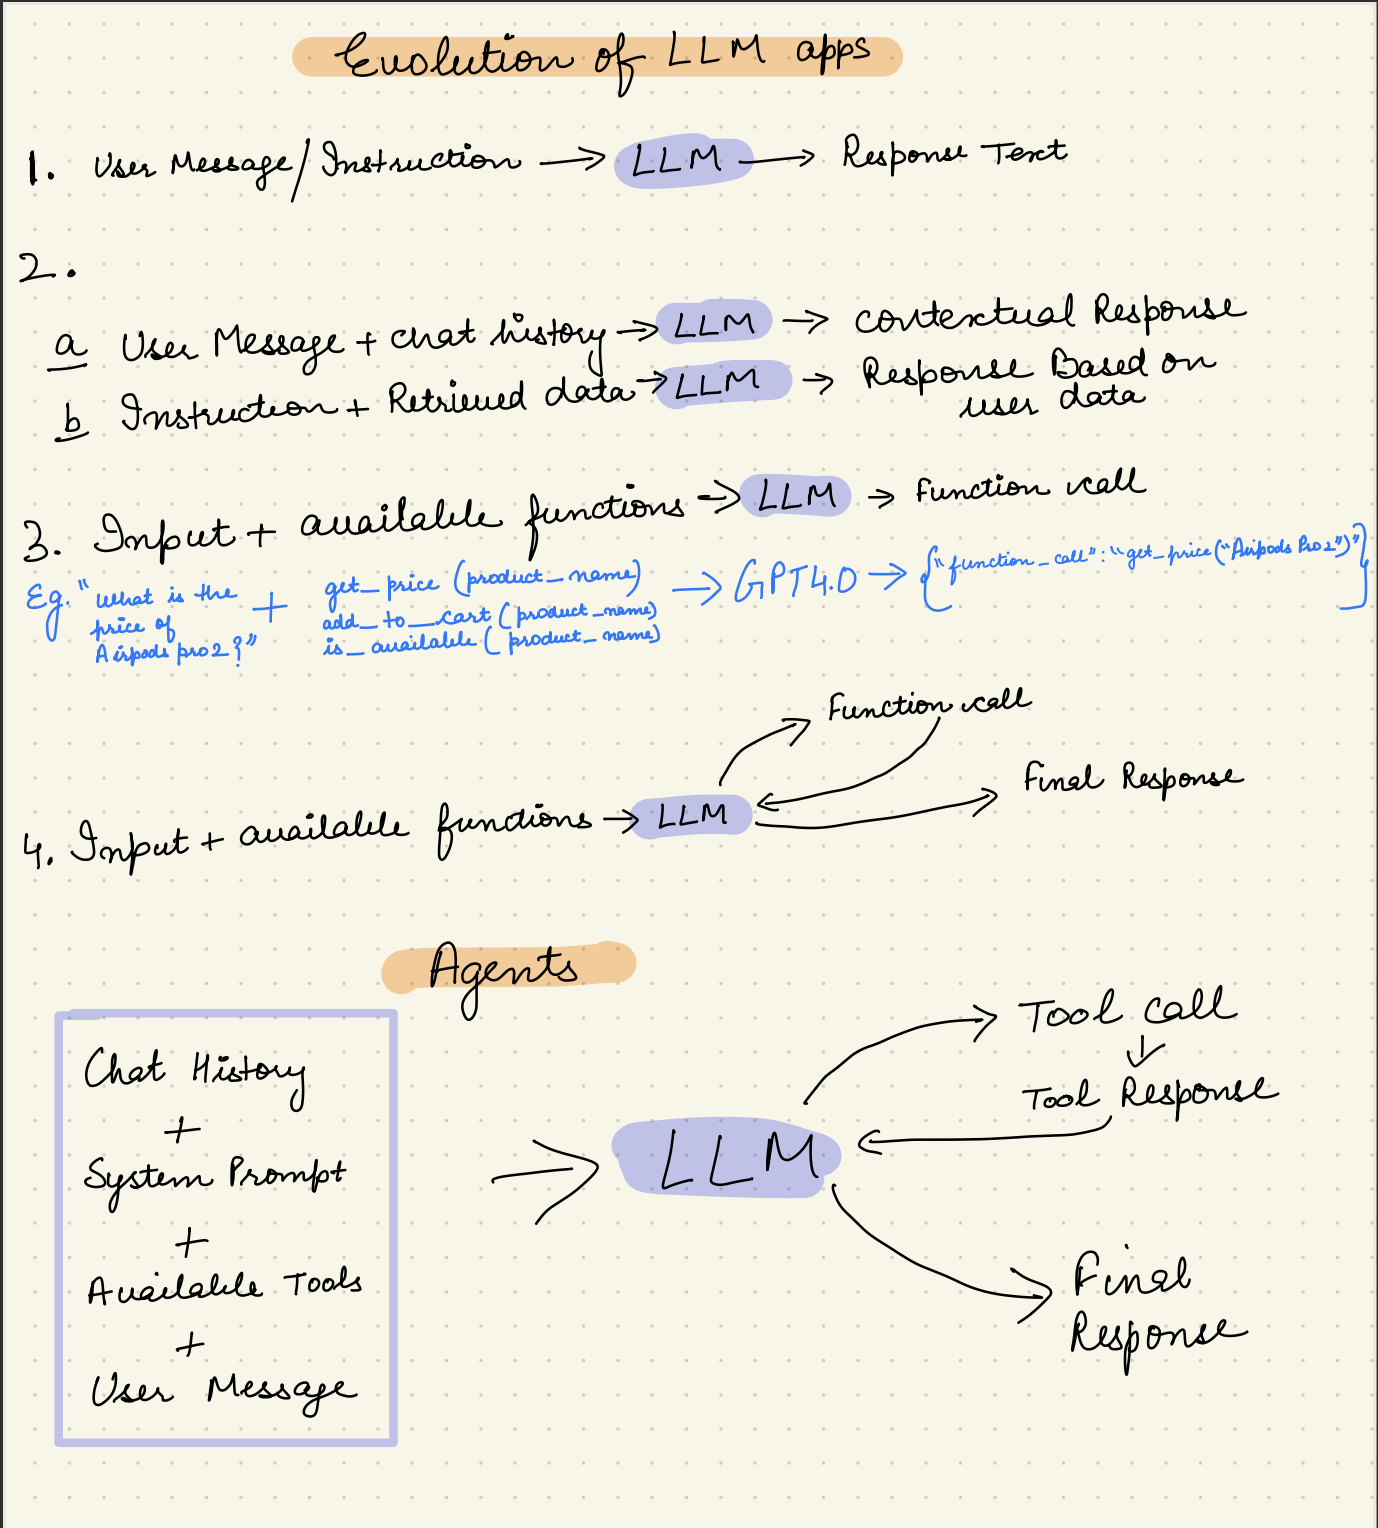 Evolution of LLM apps
1. User Message/Instruction → LLM → Response Text
2.
a User Message + chat history → LLM → contextual Response
b Instruction + Retrieved data → LLM → Response Based on
user data
3. Input + available functions → LLM → Function call
Eg. "What is the
price of
Airpods pro 2?"
+
get_price (product_name)
add_to_cart (product_name)
is_available (product_name)
→ GPT4.0 → {"function_call":"get_price("Airpods Pro 2")"}
Function call
Final Response
4. Input + available functions → LLM
Agents
Chat History
+
System Prompt
+
Available Tools
+
User Message
→ LLM
Tool call
↓
Tool Response
Final
Response